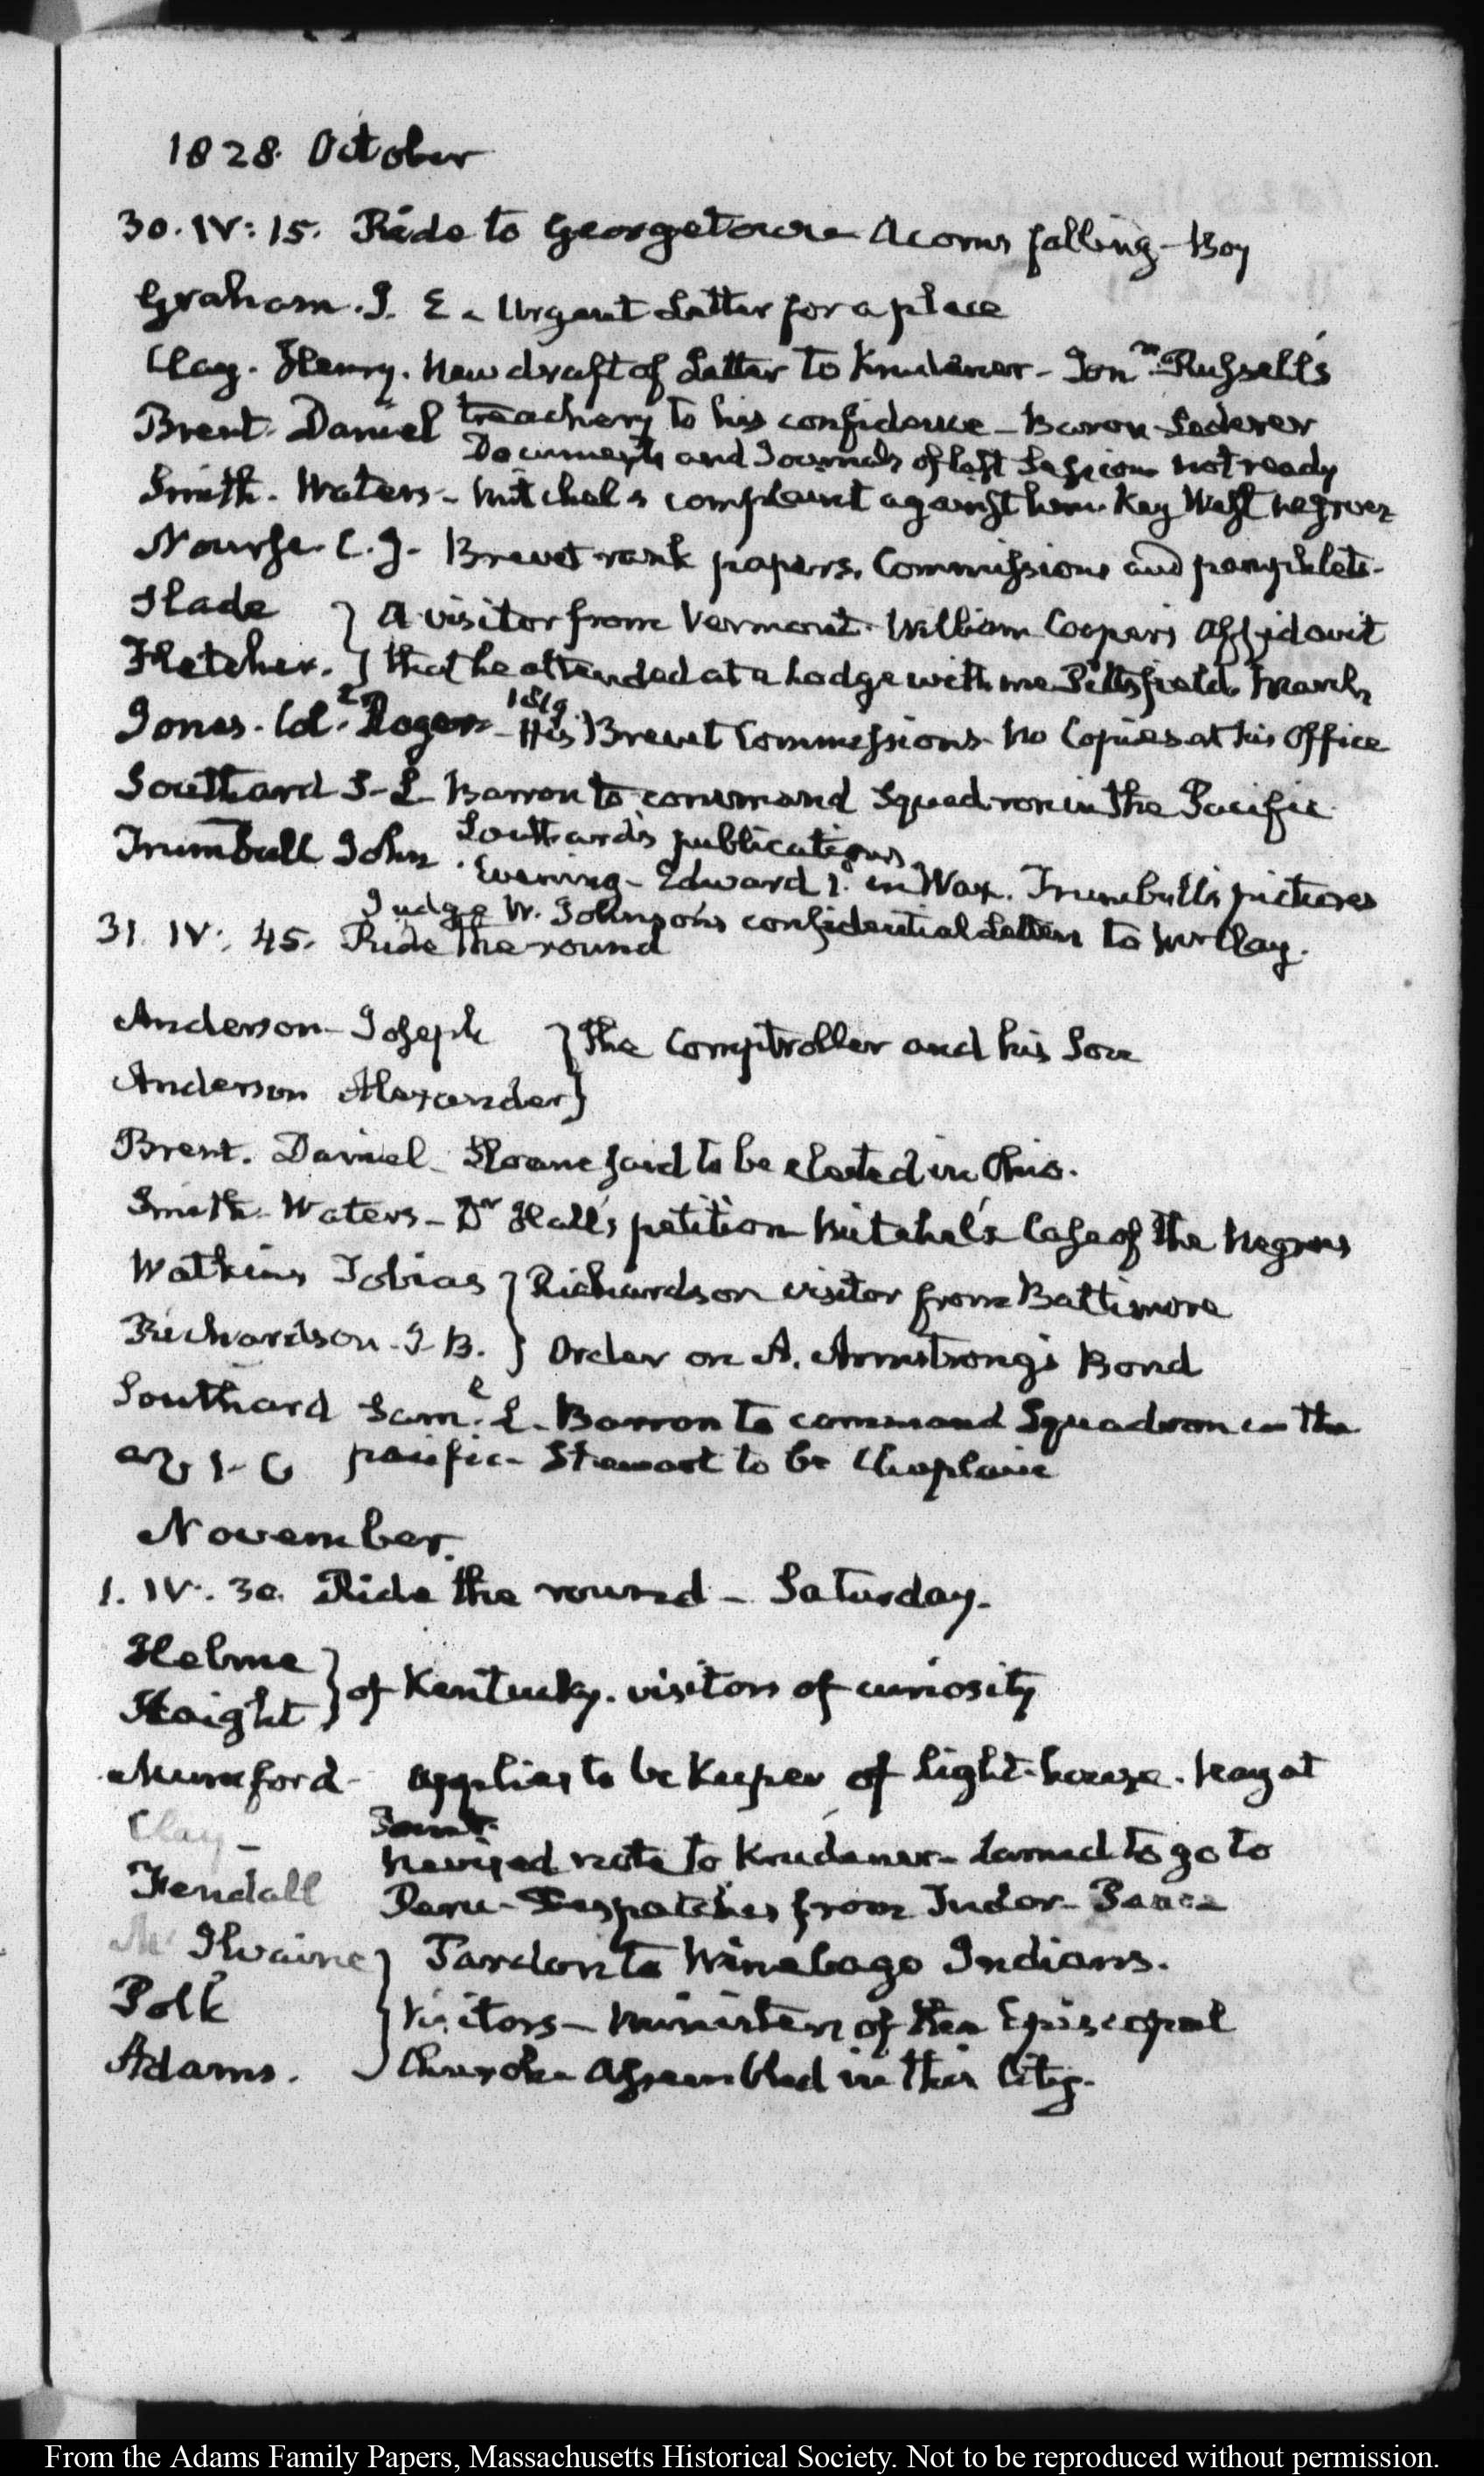 1828. October
30. IV: 15. Ride to Georgetown Acorns falling - Boy
Graham. J. E. - Urgent Letter for a place
Clay. Henry. New draft of Letter to Krudener - Jonn. Russell's
treachery to his confidence - Baron Lederer
Brent. Daniel Documents and Journals of last Session not ready
Smith. Waters - Mitchel's complaint against him. Key West negroes
Nourse. C. J. Brevet rank papers. Commissions and pamphlets.
Slade } A visitor from Vermont. William Cooper's Affidavit
Fletcher. } that he attended at a Lodge with me Pittsfield March
1819.
Jones. Col. Roger - His Brevet Commissions no Copies at his Office
Southard S. L Barron to command Squadron in the Pacific
Southard's publications
Trumbull John. Evening - Edward in Wax. Trumbull's pictures
Judge W. Johnson's confidential Letters to Mr Clay.
31. IV. 45. Ride the round
Anderson - Joseph } The Comptroller and his Son
Anderson Alexander }
Brent. Daniel - Sloane said to be elected in Ohio.
Smith. Waters - Dr Hall's petition Mitchel's Case of the Negroes
Watkins Tobias } Richardson visitor from Baltimore
Richardson. J. B. } Order on A. Armstrong's Bond
Southard Saml. L. Barron to command Squadron in the
pacific - Stewart to be Chaplain
November.
1. IV. 30. Ride the round - Saturday.
Helme } of Kentucky. visitors of curiosity
Haight }
Mumford - applies to be Keeper of light-house. Nayat
Point.
Clay - Revised note to Krudener - Larned to go to
Kendall Peru - Despatches from Tudor - Peace
Mc Ilvaine } Pardon to Winebago Indians.
Polk } Visitors - Ministers of the Episcopal
Adams. } Church assembled in this City.
From the Adams Family Papers, Massachusetts Historical Society. Not to be reproduced without permission.